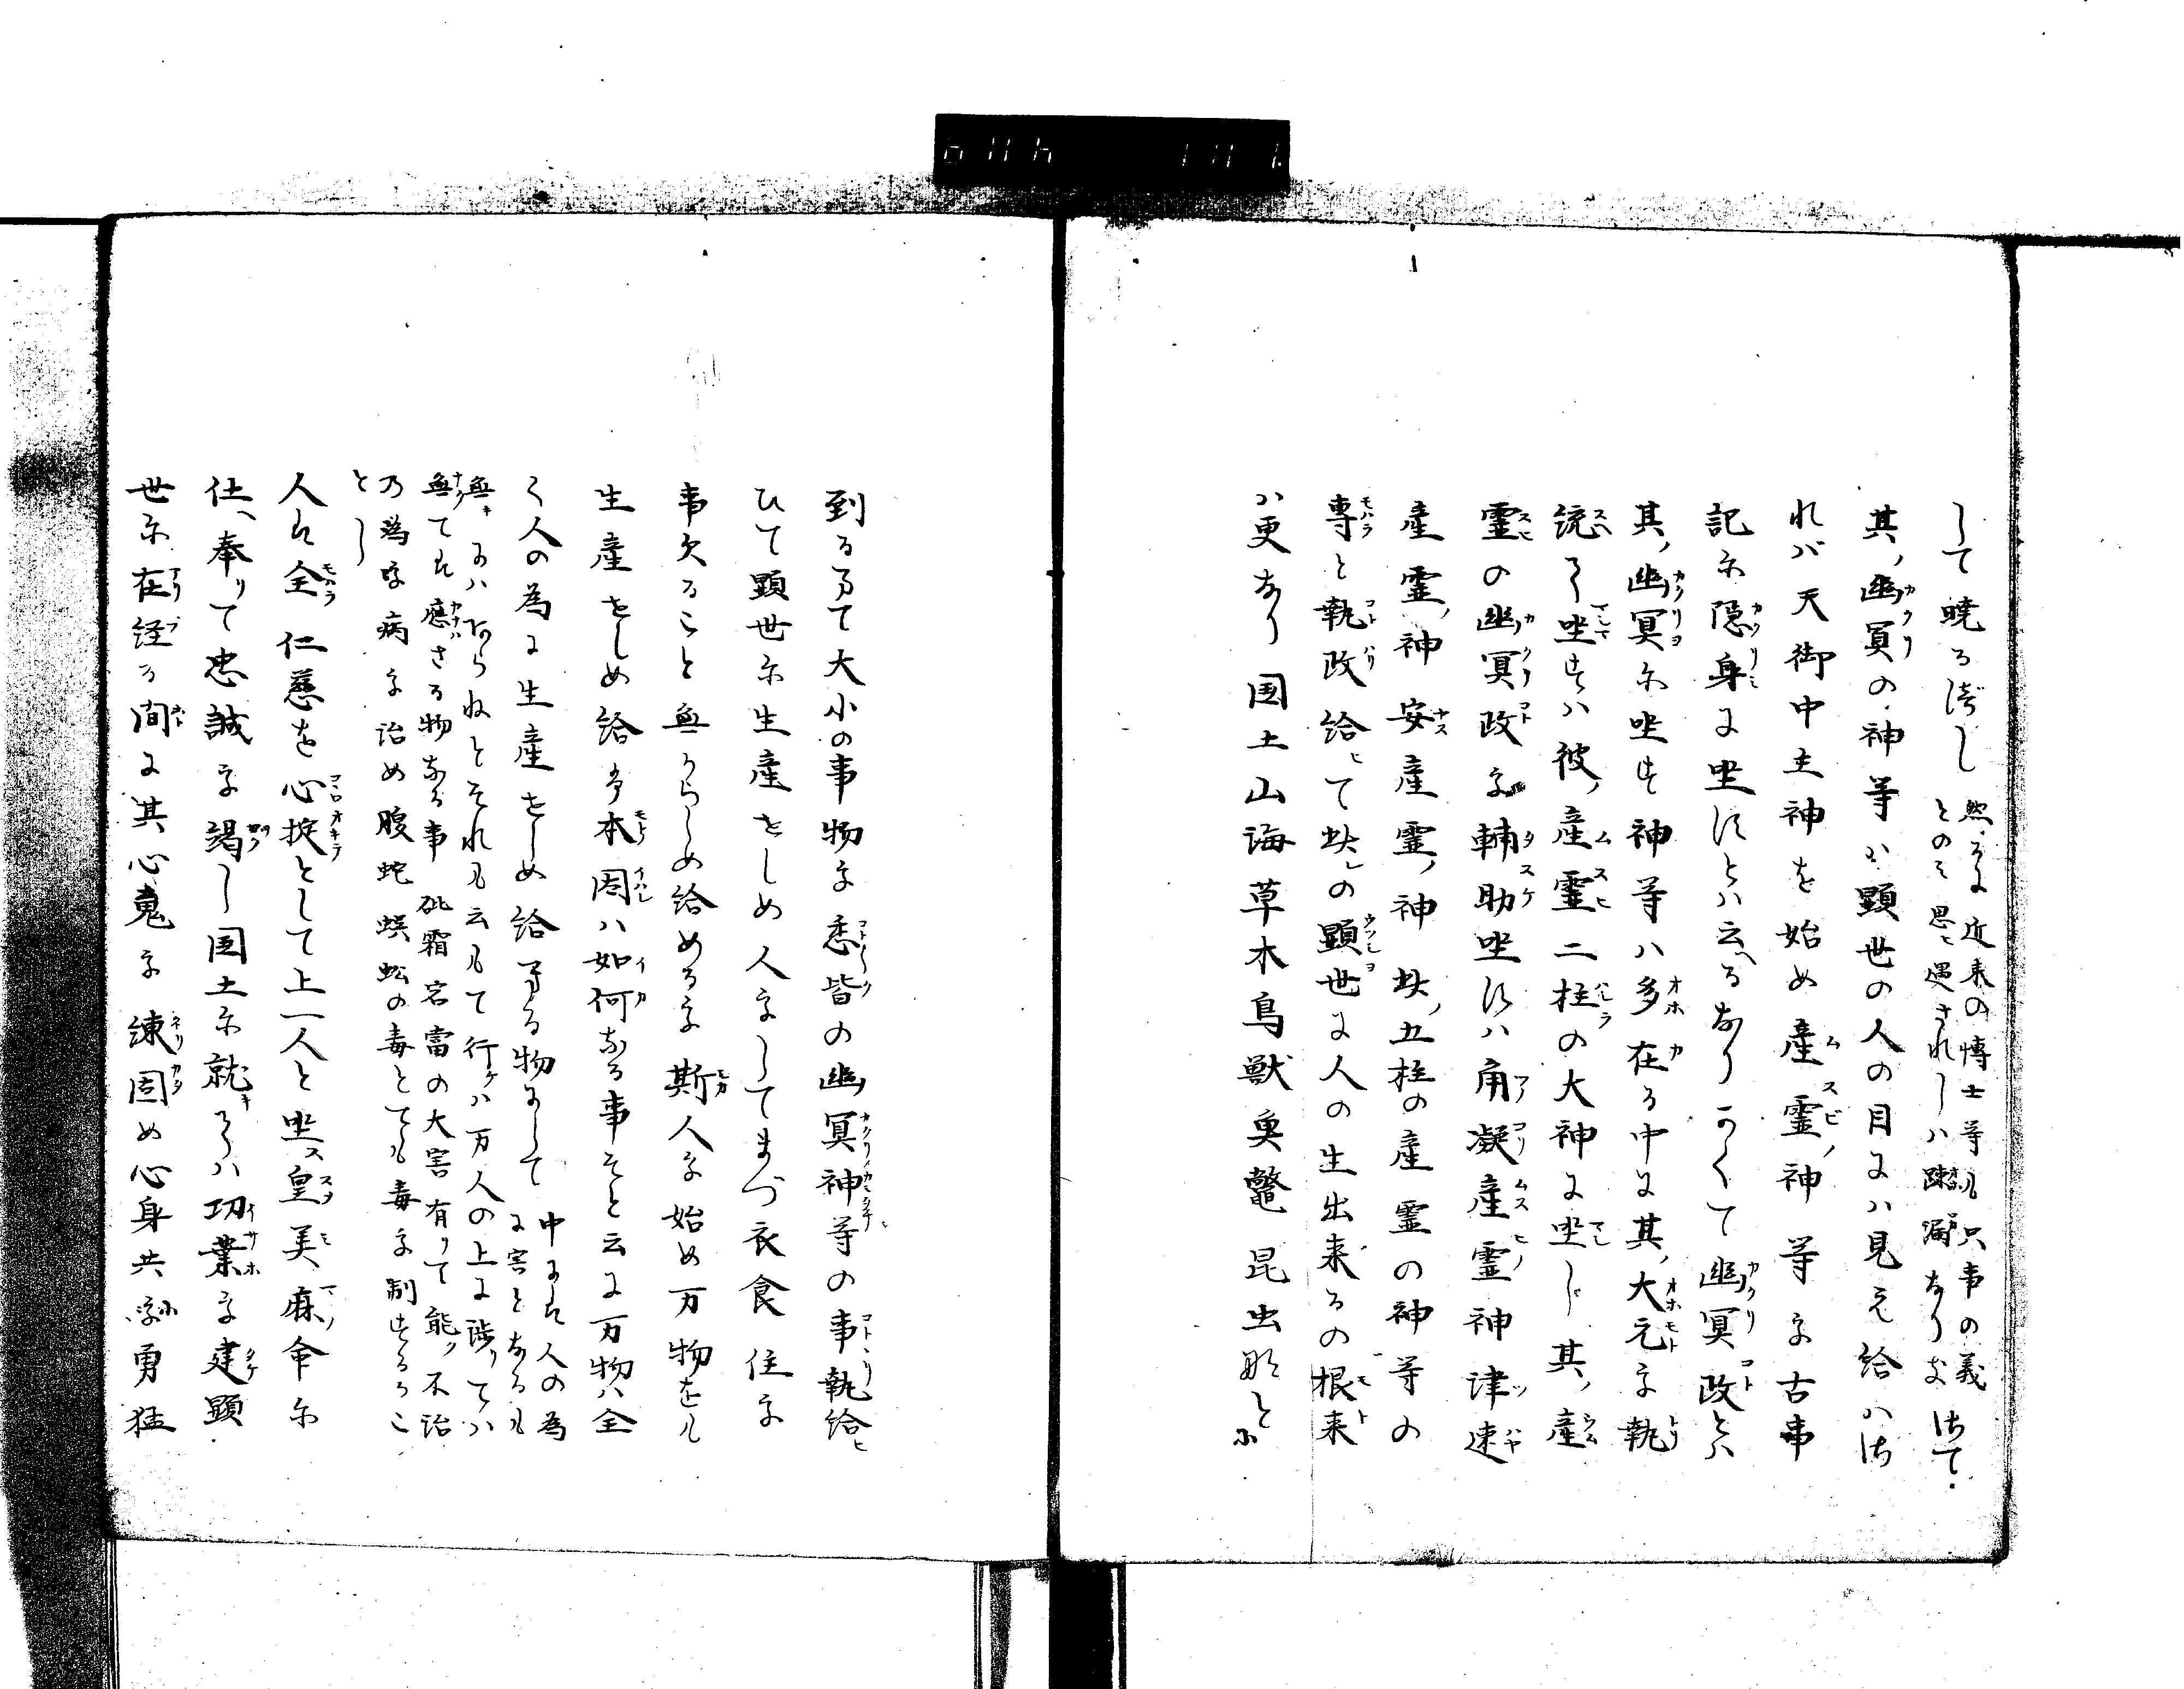 して暁るべし
然るに近来の博士等も只事の義
とのみ思ヒ過されしハ踈漏なりかれ
其ノ幽冥の神等ハ顕世の人の目にハ見え給ハざ
れバ天御中主神を始め産霊ノ神等を古事
記に隠身に坐すとハ云へるなりかくて幽冥政とハ
其ノ幽冥に坐す神等ハ多在る中に其ノ大元を執
統て坐すハ彼ノ産霊二柱の大神に坐し其ノ産
霊の幽冥政を輔助坐すハ角凝産霊神津速
産霊ノ神安産霊ノ神此ノ五柱の産霊の神等の
専と執政給ヒて此レの顕世に人の生出来るの根来
ハ更なり国土山海草木鳥獣魚鼈昆虫那どに
到るまで大小の事物を悉皆の幽冥神等の事執給ヒ
ひて顕世に生産せしめ人をしてまづ衣食住を
事欠ること無からしめ給めるを斯人を始め万物をも
生産せしめ給ふ本因ハ如何なる事そと云に万物ハ全
く人の為に生産せしめ給へる物にして
中にハ人の為
に害となるも
無キにハあらねとそれも云もて行ケハ万人の上に渉りてハ
無てハ應ハさる物なる事砒霜岩雷の大害有りて能ク不治
乃為す病を治め腹蛇蜈蚣の毒とても毒を制するこ
とし
人ハ全仁慈を心掟として上一人と坐ス皇美麻命に
仕ヘ奉りて忠誠を竭し国土に就キてハ功業を建顕
世に在経る間に其心魂を練固め心身共に勇猛